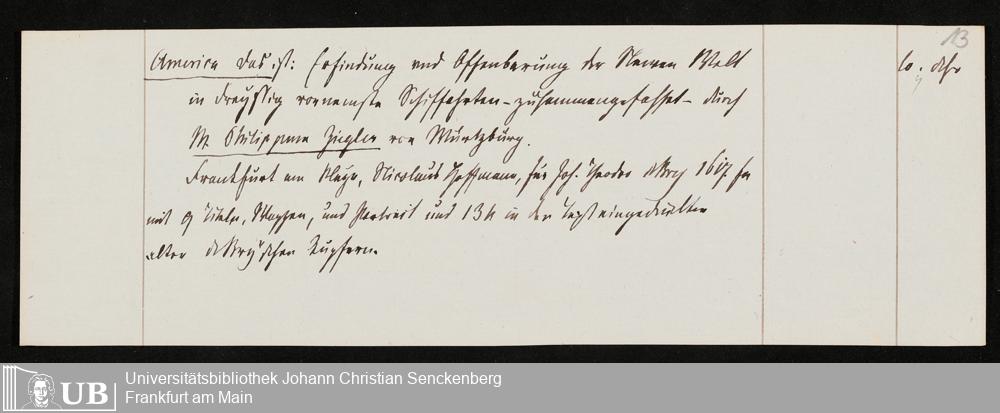 13
America das ist: Erfindung vnd Offenbarung der Newen Welt
in dreyssig vornemste Schiffahrten – zusammengefasset – durch
M Philippum Ziegler von Würtzburg.
Frankfurt am Mayn, Nicolaus Hoffmann, für Joh. Theodor deBry 1617 fo
mit 9 Titeln, Mappen, und Portrait und 134 in den Text eingedruckten
alten deBry'schen Kupfern.
UB
Universitätsbibliothek Johann Christian Senckenberg
Frankfurt am Main